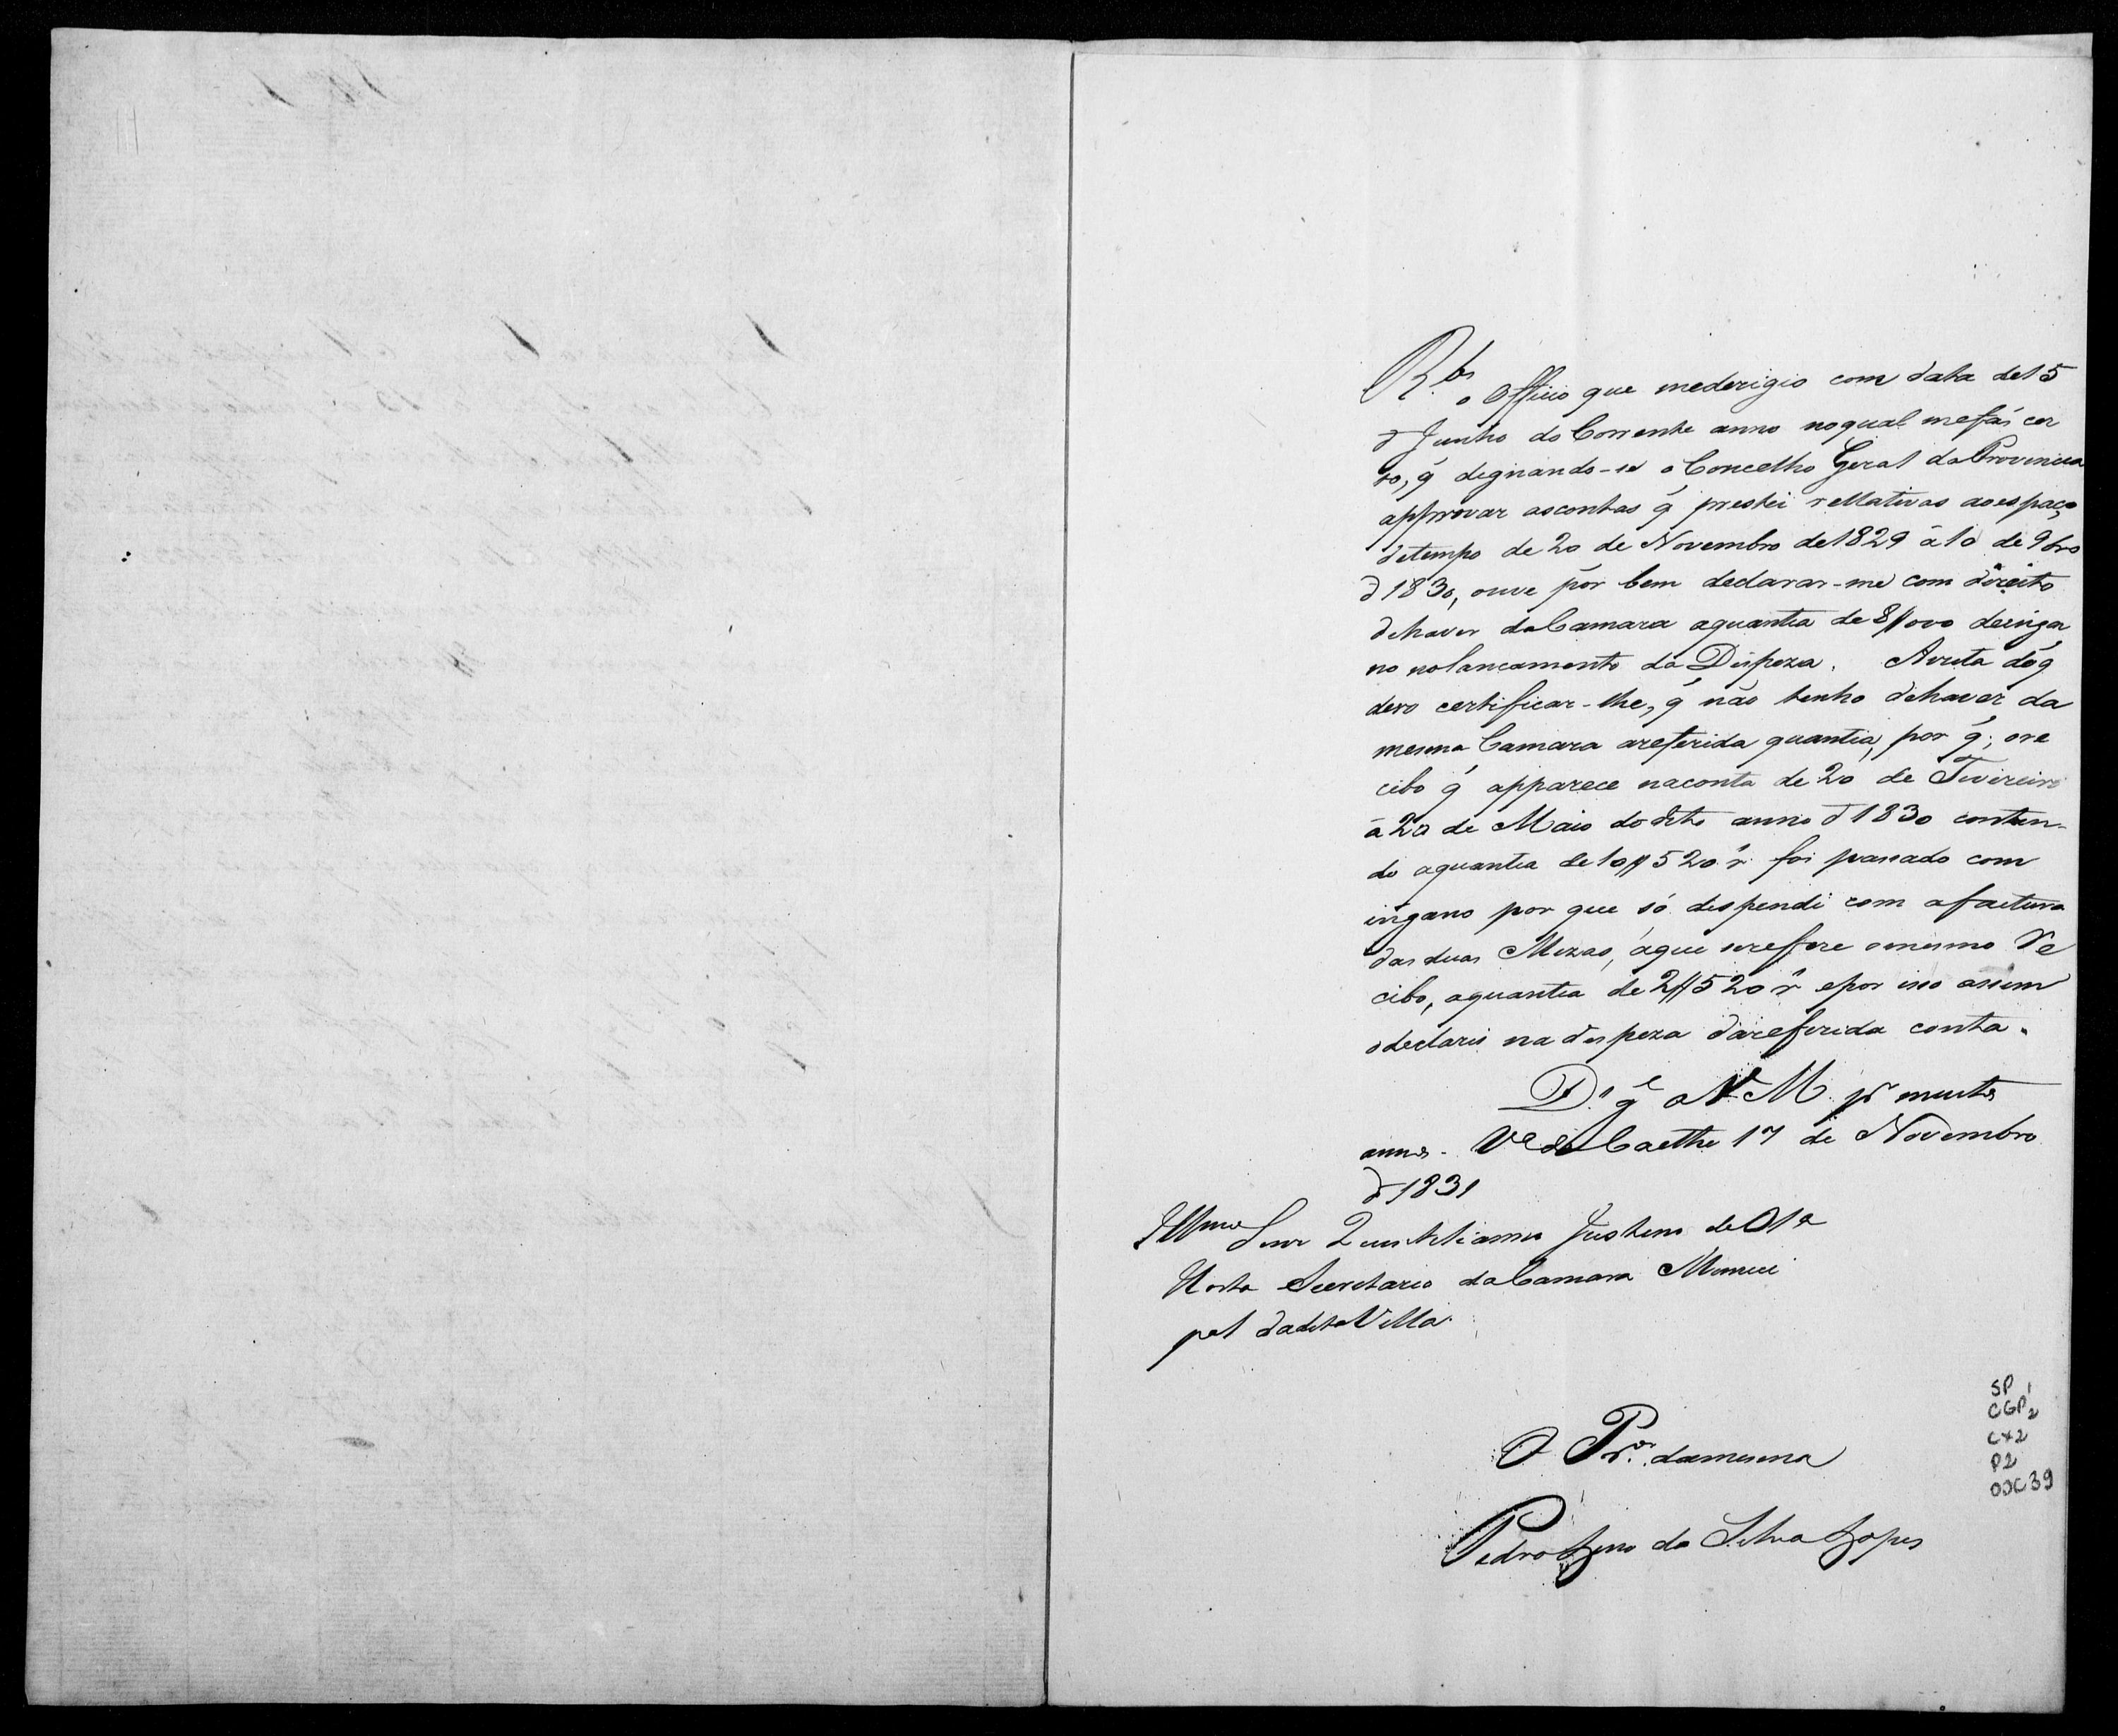 Rbi o Officio que mederigio com data de 15
d Junho do Corrente anno noqual mefás cer
to, q̃ dignando-se o Concelho Geral da Provincia
approvar ascontas q̃ prestei rellativas aoespaço
detempo de 20 de Novembro de 1829 á 10 de 9bro
d 1830, ouve por bem declarar-me com direito
dehaver da Camara aquantia de 8//000 deinga
no nolancamento da Dispeza. Avista dóq̃
devo certificar-lhe, q̃ não tenho dehaver da
mesma Camara areferida quantia, por q̃; ore
cibo q̃ apparece naconta de 20 de Fivireiro
a 20 de Maio do dito anno d 1830 conten-
do aquantia de 10//520 r. foi passado com
ingano por que só despendi com afactura
das duas Mezas, áque sereffere omesmo Re
cibo, aquantia de 2//520 r epor isso assim
odeclarei na dispeza dareferida conta.
D.s g.e a V M p.r muitos
annos. V.a de Caethe 17 de Novembro
d 1831
Illmo Snr Quintiliano Justino de Olª
Horta Secretario da Camara Munici
pal dadita Villa.
O Pr.or damesma
Pedro Lino da Silva Lopes
SP 1
CGP 2
CX2
P2
DOC39